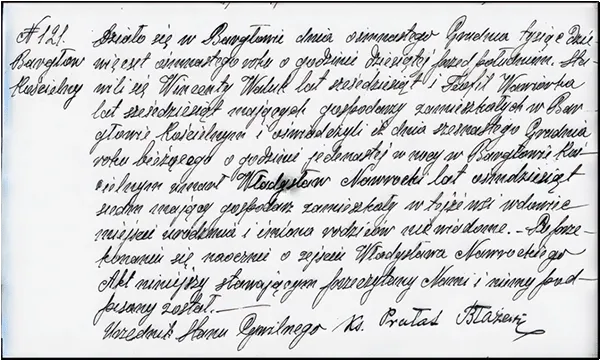 N 121.
Bargłów
Kościelny
Działo się w Bargłowie dnia osmnastego Grudnia tysiąc dzie
więcset ósmnastego roku o godzinie dziesiątej przed południem. Sta-
wili się Wincenty Waluk lat sześćdziesiąt i Teofil
lat sześćdziesiąt mających gospodarzy zamieszkałych w Bar-
głowie Kościelnym i oświadczyli iż dnia szesnastego Grudnia
roku bieżącego o godzinie jedenastej w nocy w Bargłowie Koś
cielnym zmarł Władysław Nawrocki lat osmdziesiąt
siedm mający gospodarz zamieszkały w tejże wsi wdowiec
miejsce urodzenia i imiona rodziców niewiadome. - Po prze-
konaniu się naocznie o zejściu Władysława Nawrockiego
Akt niniejszy stawającym przeczytany Nami i nimi pod-
pisany został. —
Urzędnik Stanu Cywilnego Ks. Prałat